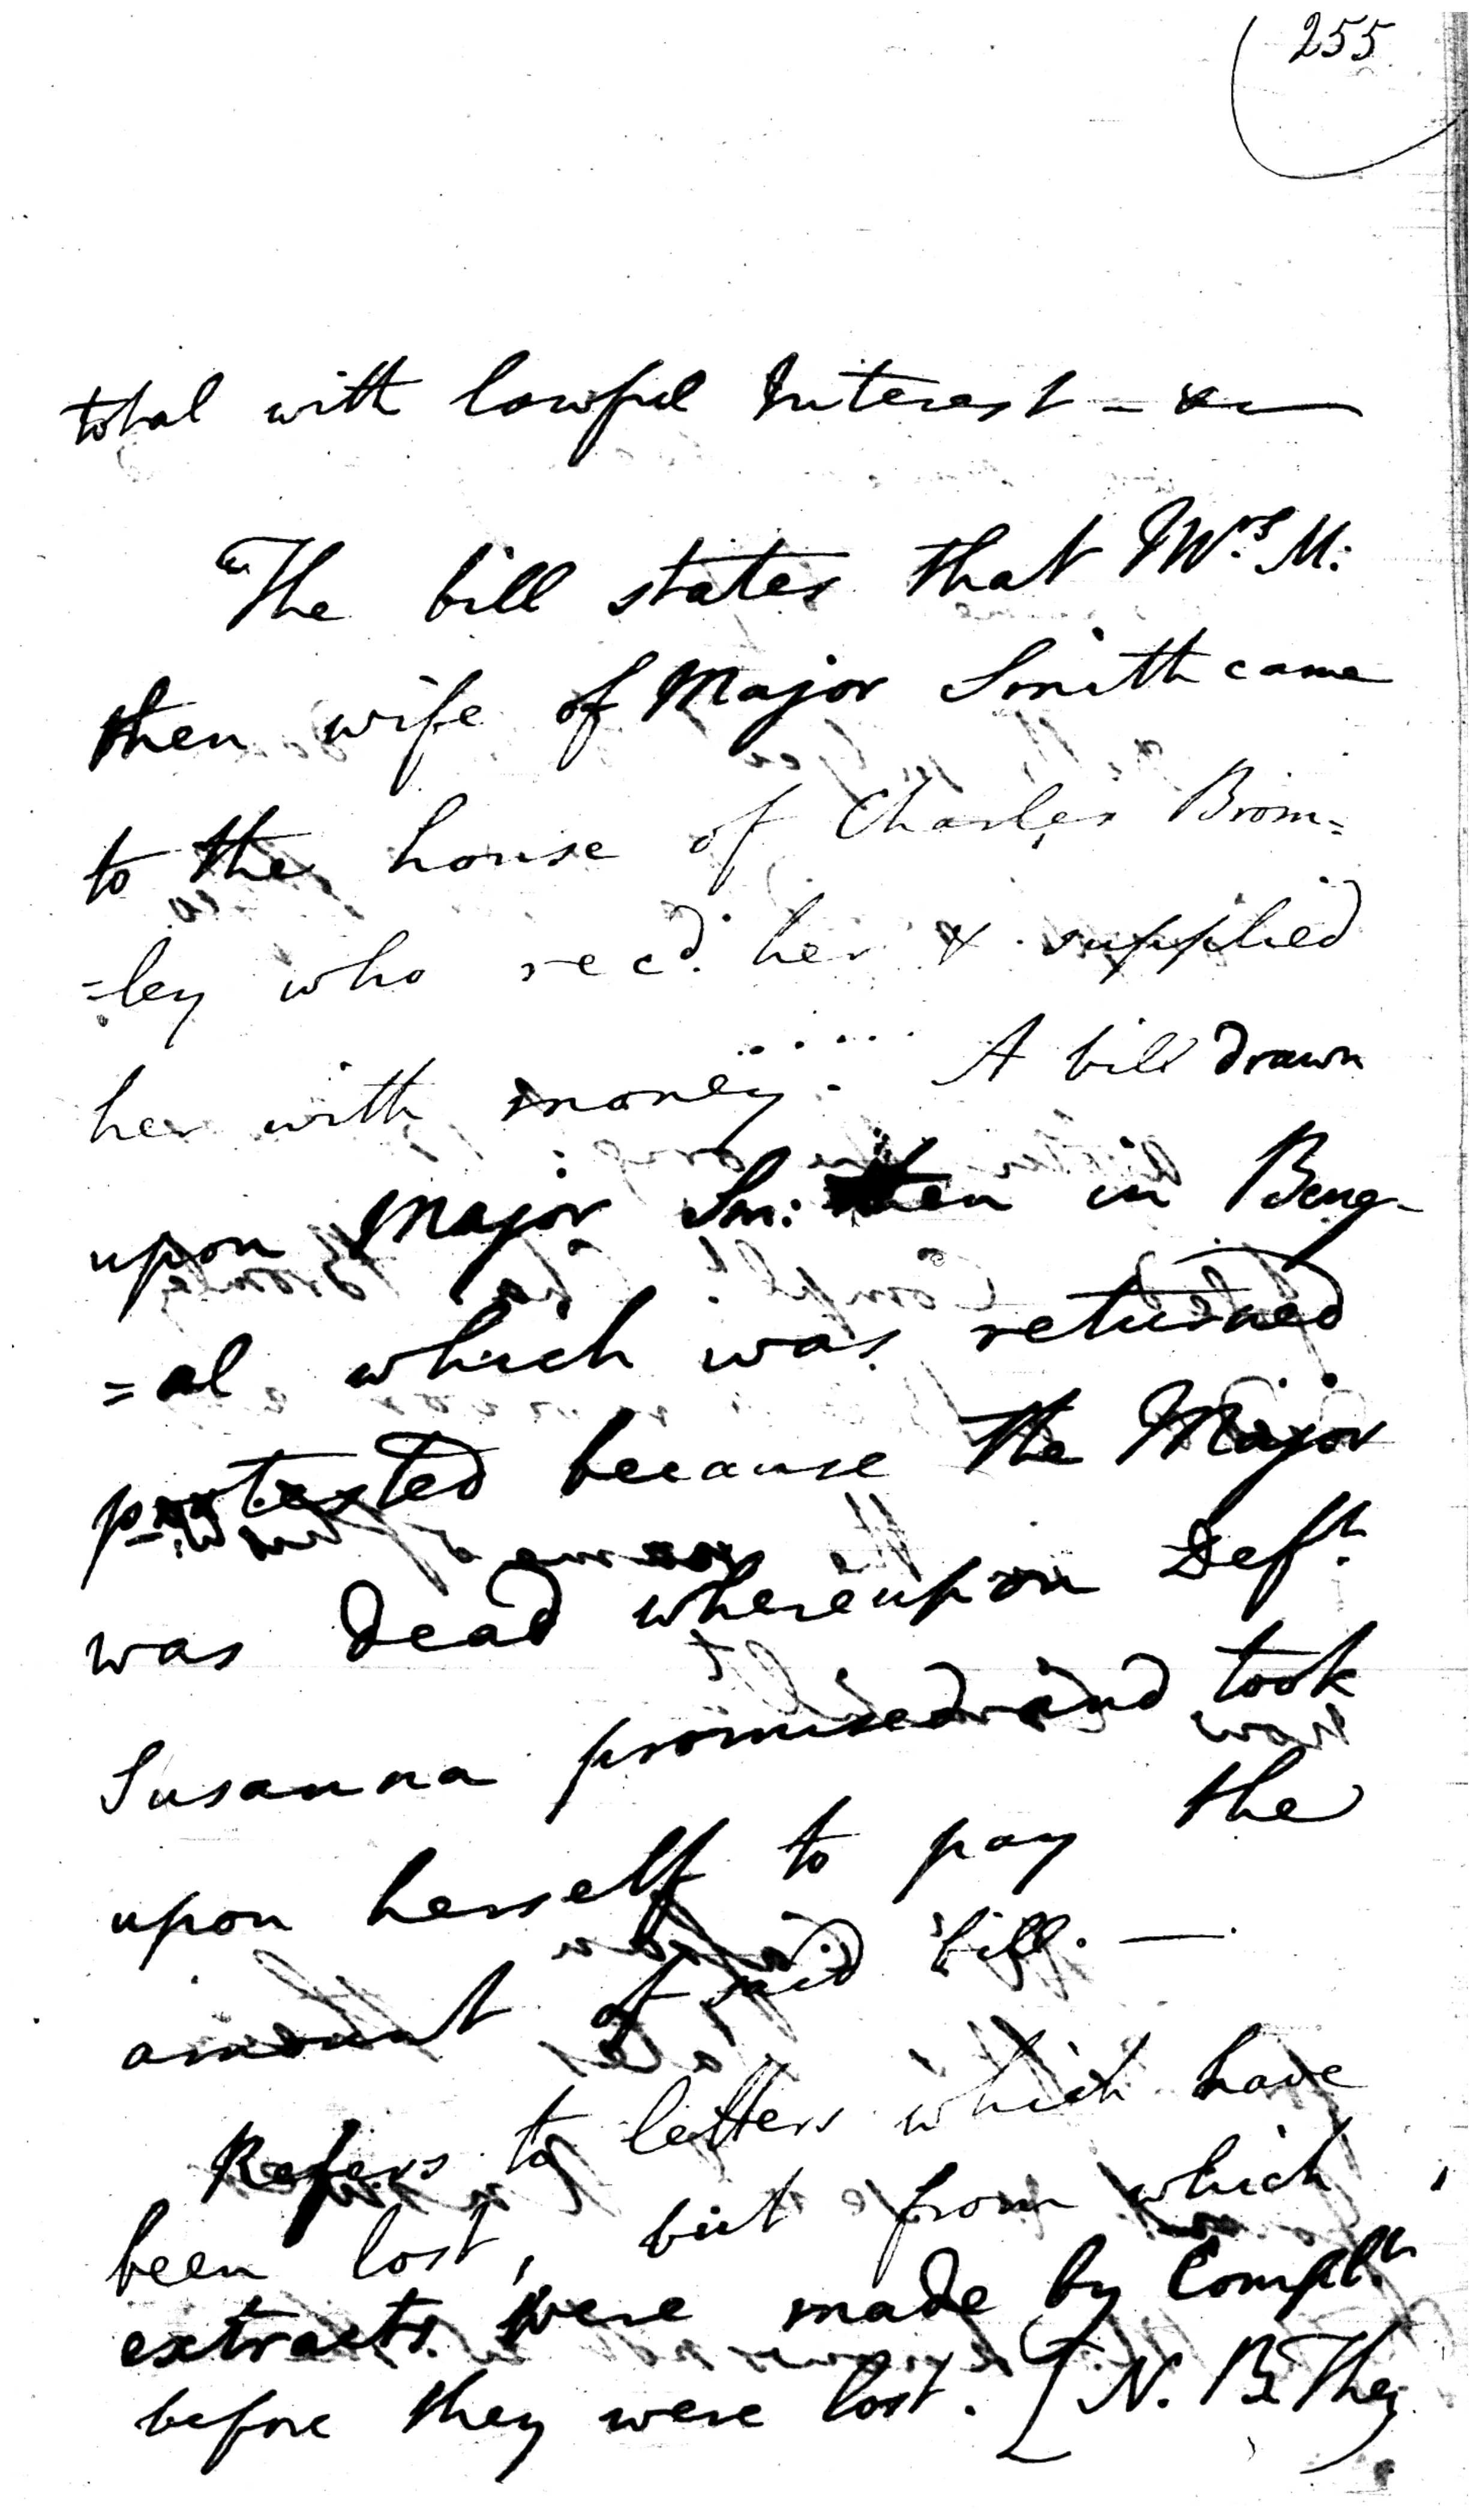 255
total with lawful Interest - &c
The bill states that Mrs. M:
then wife of Major Smith came
to the house of Charles Brom=
=ley who recd. her & supplied
her with money. . . . . . A bill drawn
upon Major Sm: then in Beng-
=al which was returned
protested because the Major
was dead whereupon Deft.
Susanna promised and took
upon herself to pay the
amount of said bill. —
Refers to letters which have
been lost, but from which
extracts were made by Complts
before they were lost. [N. B. They